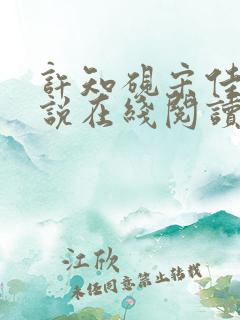 許知硯宋佳
說在綫閱讀
江欣
未經同意禁止轉載